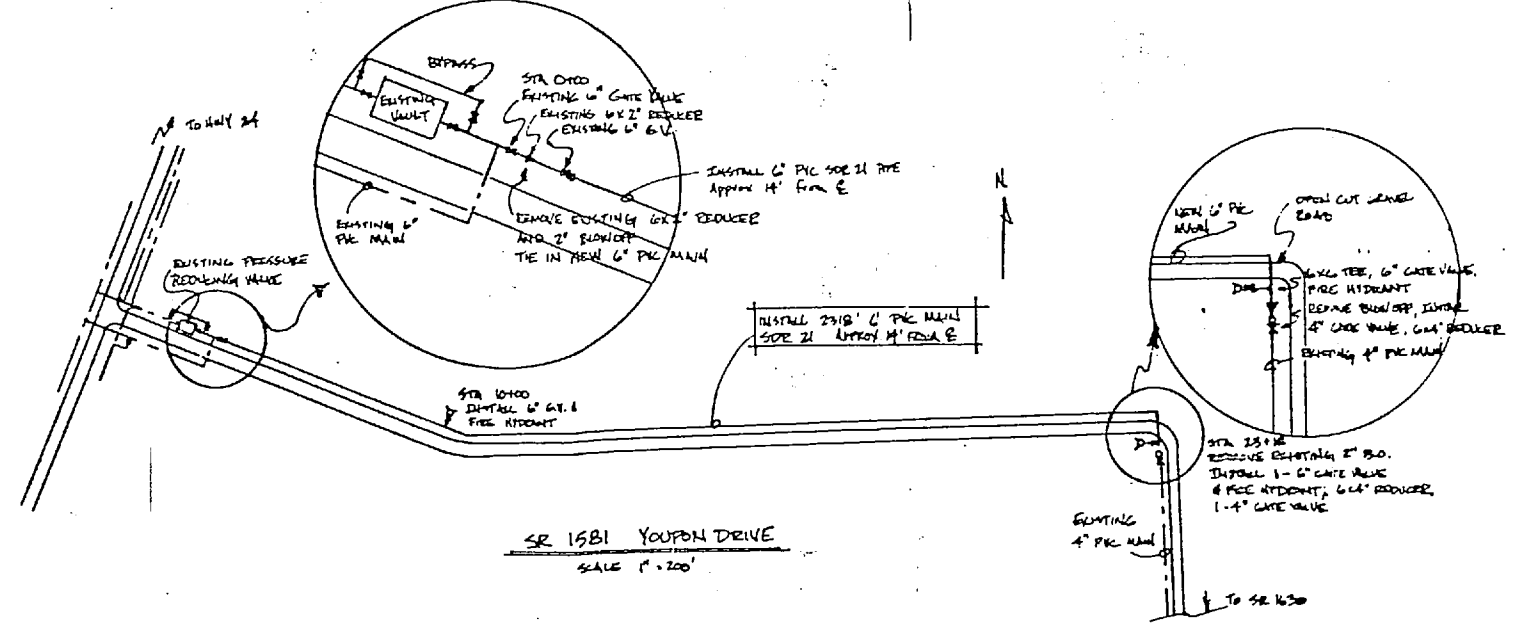 TO HWY 24
BYPASS
EXISTING
VAULT
STA 0+00
EXISTING 6" GATE VALVE
EXISTING 6X2" REDUCER
EXISTING 6" G.V.
INSTALL 6" PVC SDR 21 PIPE
APPROX 14' FROM ℄
REMOVE EXISTING 6X2" REDUCER
AND 2" BLOWOFF
TIE IN NEW 6" PVC MAIN
EXISTING 6"
PVC MAIN
EXISTING PRESSURE
REDUCING VALVE
N
NEW 6" PVC
MAIN
OPEN CUT GRAVEL
ROAD
6X6 TEE, 6" GATE VALVE,
FIRE HYDRANT
REMOVE BLOWOFF, INSTALL
4" GATE VALVE, 6X4" REDUCER
EXISTING 4" PVC MAIN
INSTALL 2318' 6" PVC MAIN
SDR 21 APPROX 14' FROM ℄
STA 10+00
INSTALL 6" G.V. &
FIRE HYDRANT
STA 23+18
REMOVE EXISTING 2" B.O.
INSTALL 1-6" GATE VALVE
& FIRE HYDRANT; 6X4" REDUCER,
1-4" GATE VALVE
EXISTING
4" PVC MAIN
SR 1581 YOUPON DRIVE
SCALE 1" = 200'
TO SR 1630